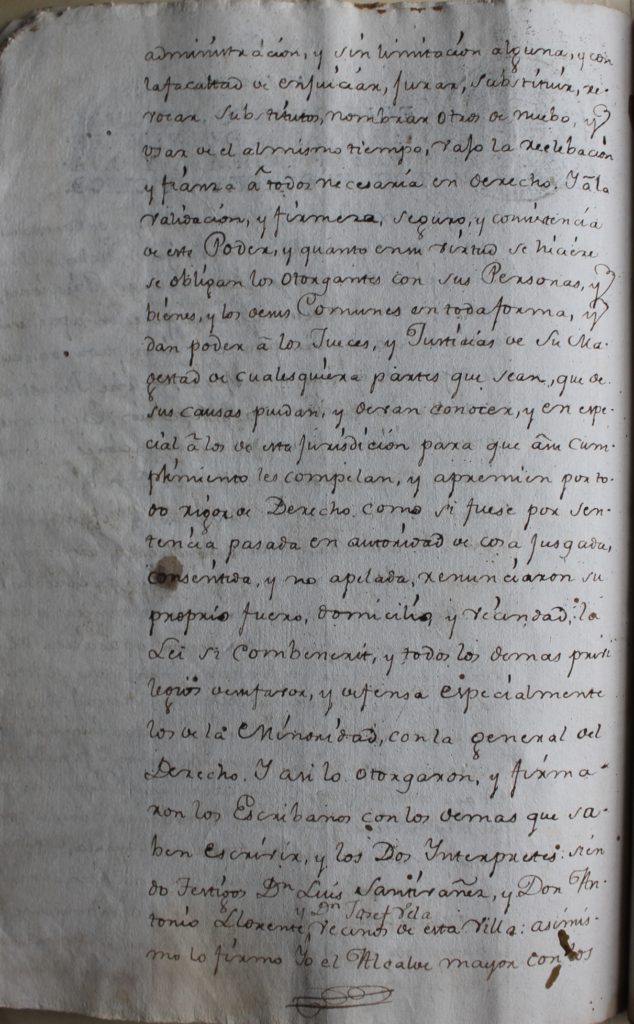 administracion, y sin limitacion alguna, y con
la facultad de enjuiciar, jurar, substituir, re-
vocar substitutos, nombrar otros de nuebo, y
usar de el al mismo tiempo, vajo la relebacion
y fianza â todos necesaria en derecho. Y â la
validacion, y firmeza, seguro, y consistencia
de este Poder, y quanto en su virtud se hiciere
se obligan los otorgantes con sus Personas, y
bienes, y los de sus Comunes en toda forma, y
dan poder â los Jueces, y Justicias de Su Ma-
gestad de cualesquiera partes que sean, que de
sus causas puedan, y devan conocer, y en espe-
cial â los de esta jurisdicion para que â su cum-
plimiento les compelan, y apremien por to-
do rigor de Derecho como si fuese por sen-
tencia pasada en autoridad de cosa jusgada,
consentida, y no apelada, renunciaron su
proprio fuero, domicilio, y vecindad, la
Lei si Combenerit, y todos los demas privi
legios de su favor, y defensa especialmente
los de la Minoridad, con la general del
Derecho. Y asi lo otorgaron, y firma-
ron los Escribanos con los demas que sa-
ben escrivir, y los Dos Interpretes: sien
do Testigos Dn Luis Santivañez, y Don An-
y Dn Josef Vela
tonio Llorente vecinos de esta Villa: asimis-
mo lo firmo Yo el Alcalde mayor con los